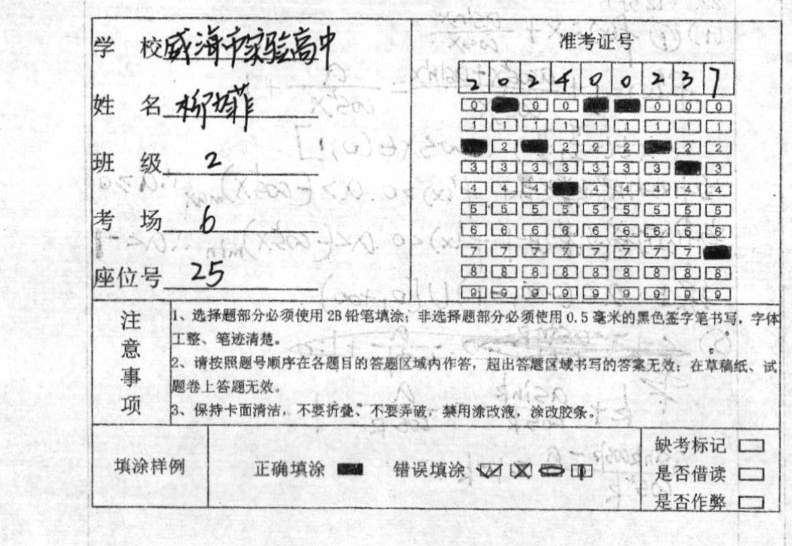 学 校 威海市实验高中
姓 名 柳
班 级 2
考 场 6
座位号 25
准考证号
2 0 2 4 0 0 2 3 7
0 0 0 0 0 0
1 1 1 1 1 1 1 1 1
2 2 2 2 2 2
3 3 3 3 3 3 3 3
4 4 4 4 4 4 4 4
5 5 5 5 5 5 5 5 5
6 6 6 6 6 6 6 6 6
7 7 7 7 7 7 7 7
8 8 8 8 8 8 8 8 8
9 9 9 9 9 9 9 9 9
注意事项
1、选择题部分必须使用2B铅笔填涂；非选择题部分必须使用0.5毫米的黑色签字笔书写，字体
工整、笔迹清楚。
2、请按照题号顺序在各题目的答题区域内作答，超出答题区域书写的答案无效；在草稿纸、试
题卷上答题无效。
3、保持卡面清洁，不要折叠、不要弄破，禁用涂改液，涂改胶条。
填涂样例 正确填涂 错误填涂
缺考标记
是否借读
是否作弊